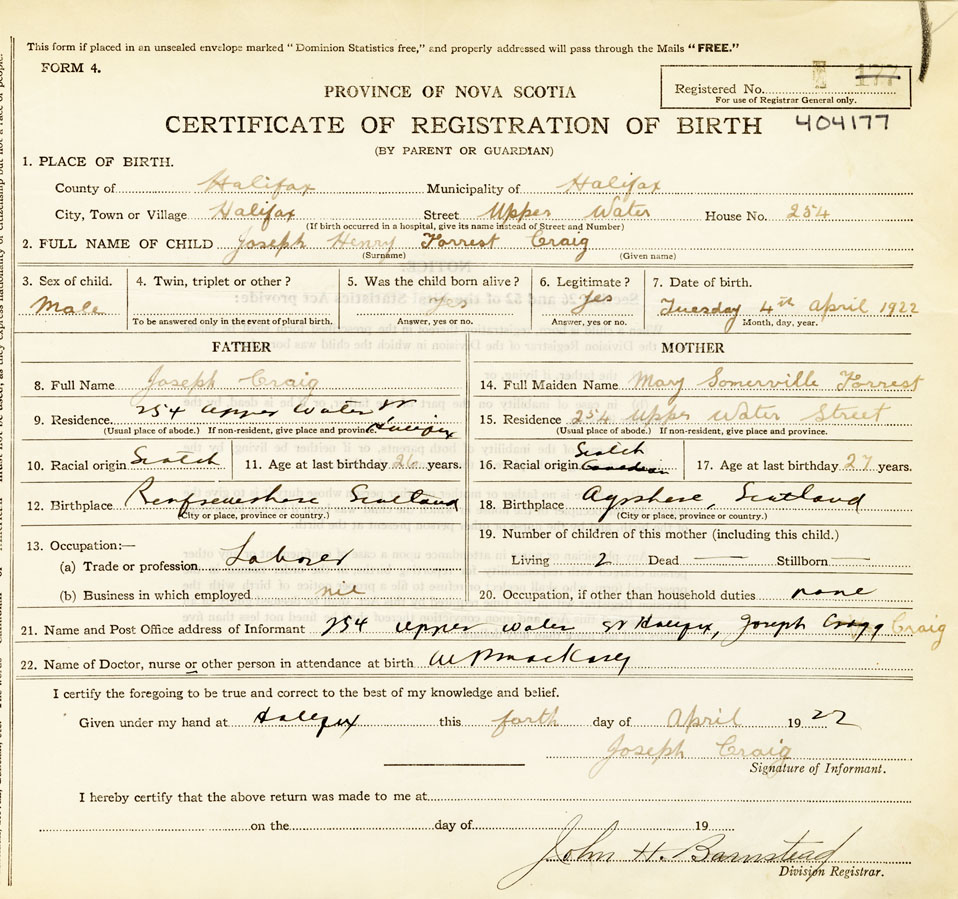 This form if placed in an unsealed envelope marked "Dominion Statistics free," and properly addressed will pass through the Mails "FREE."
FORM 4.
PROVINCE OF NOVA SCOTIA
Registered No. 177
For use of Registrar General only.
CERTIFICATE OF REGISTRATION OF BIRTH 404177
(BY PARENT OR GUARDIAN)
1. PLACE OF BIRTH.
County of Halifax Municipality of Halifax
City, Town or Village Halifax Street Upper Water House No. 254
(If birth occurred in a hospital, give its name instead of Street and Number)
2. FULL NAME OF CHILD Joseph Henry Forrest Craig
(Surname) (Given name)
3. Sex of child. 4. Twin, triplet or other? 5. Was the child born alive? 6. Legitimate? 7. Date of birth.
Male yes yes Tuesday 4th April 1922
To be answered only in the event of plural birth. Answer, yes or no. Answer, yes or no. Month, day, year.
FATHER
8. Full Name Joseph Craig
9. Residence. 254 Upper Water St Halifax
(Usual place of abode.) If non-resident, give place and province.
10. Racial origin Scotch 11. Age at last birthday 26 years.
12. Birthplace Renfrewshere Scotland
(City or place, province or country.)
13. Occupation:—
(a) Trade or profession Laborer
(b) Business in which employed nil
MOTHER
14. Full Maiden Name Mary Somerville Forrest
15. Residence 254 Upper Water Street
(Usual place of abode.) If non-resident, give place and province.
16. Racial origin Scotch Canadian 17. Age at last birthday 27 years.
18. Birthplace Ayrshere, Scotland
(City or place, province or country.)
19. Number of children of this mother (including this child.)
Living 2 Dead — Stillborn —
20. Occupation, if other than household duties none
21. Name and Post Office address of Informant 254 Upper Water St Halifax, Joseph Cragg Craig
22. Name of Doctor, nurse or other person in attendance at birth
I certify the foregoing to be true and correct to the best of my knowledge and belief.
Given under my hand at Halifax this forth day of April 1922
Joseph Craig
Signature of Informant.
I hereby certify that the above return was made to me at
on the day of 19
John H. Barnstead
Division Registrar.